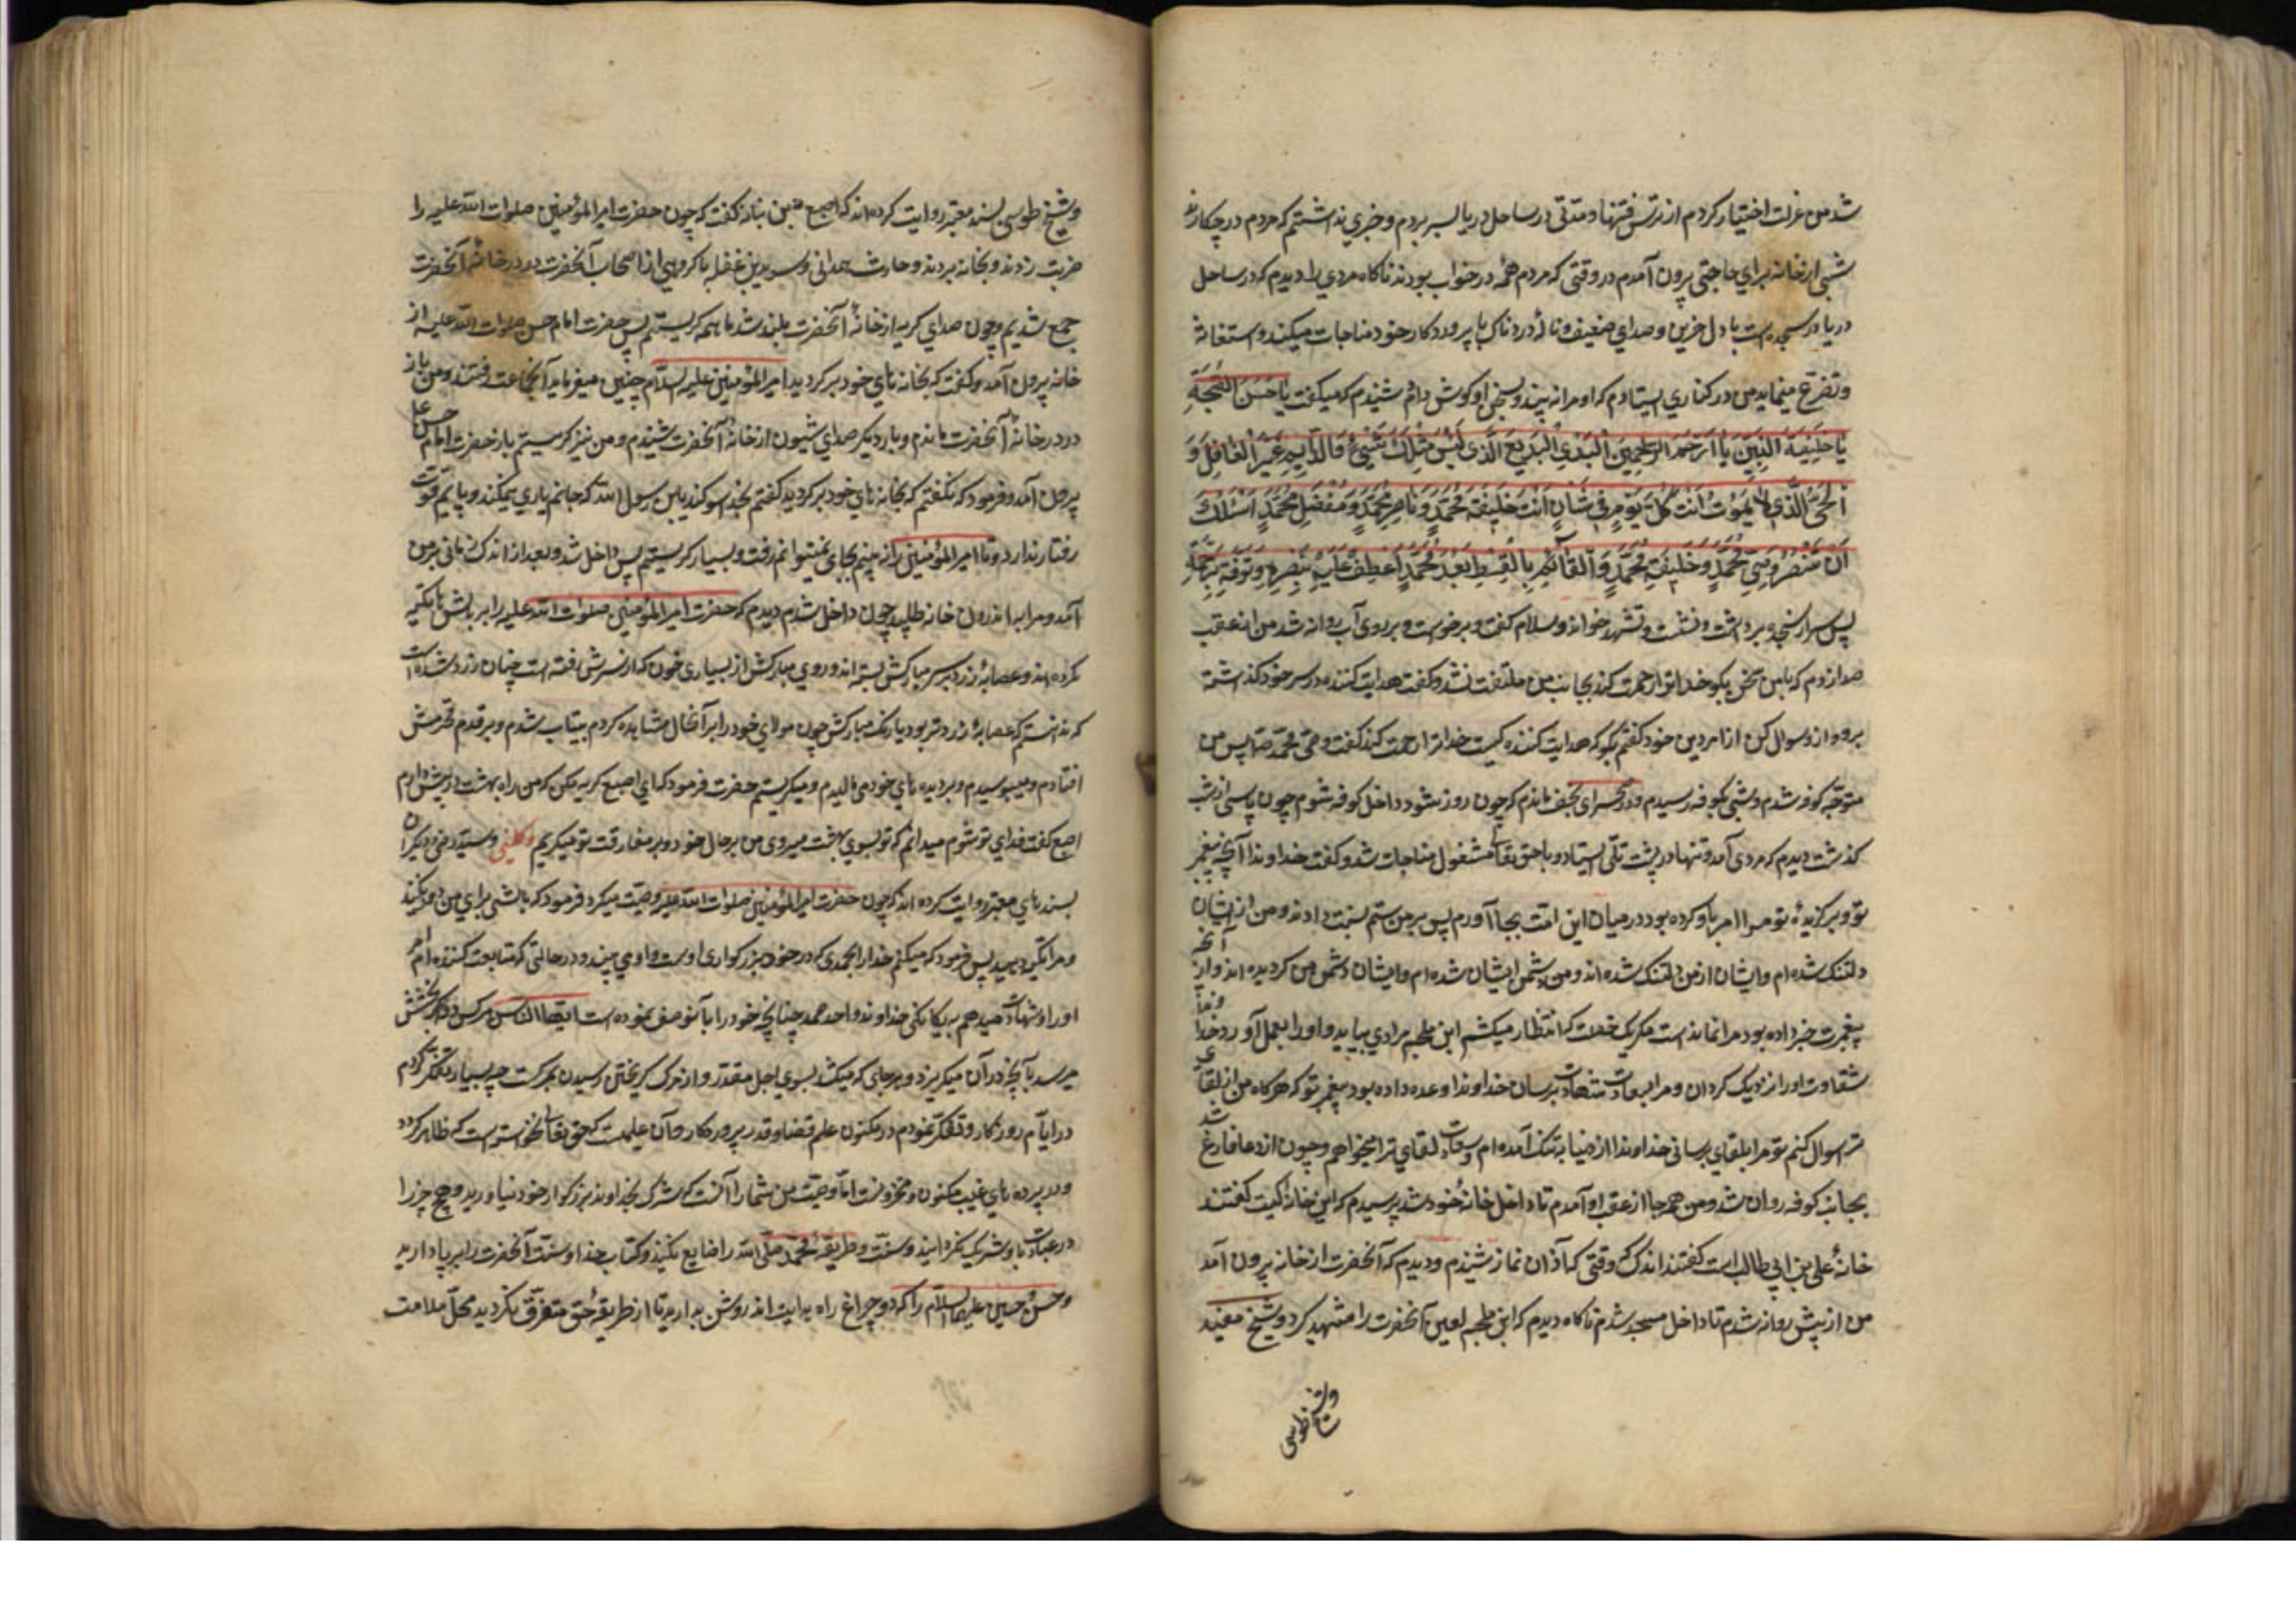 شد من عزلت اختیار کردم از ترس فتنها و مدتی در ساحل دریا بسر بردم و خبری نداشتم که مردم در چکارند
شبی از خانه برای حاجتی بیرون آمدم در وقتی که مردم همه در خواب بودند ناکاه مردی را دیدم که در ساحل
دریا در سجده است با دل حزین و صدای ضعیف و نالهٔ دردناک با پروردکار خود مناجات میکند و استغاثه
و تضرع مینماید من در کناری ایستادم که او مرا نه بیند و بسخن او کوش دادم شنیدم که میکفت یَا حَسَنَ الصُّحْبَةِ
یَا خَلِیفَةَ النَّبِیِّینَ یَا اَرْحَمَ الرَّاحِمِینَ الْبَدِیُ الْبَدِیعُ الَّذِی لَیْسَ مِثْلَکَ شَیْءٌ وَ الدَّایِمُ غَیْرُ الْغَافِلِ وَ
الْحَیُّ الَّذِی لَا یَمُوتُ اَنْتَ کُلَّ یَوْمٍ فِی شَانٍ اَنْتَ خَلِیفَةُ مُحَمَّدٍ وَ نَاصِرُ مُحَمَّدٍ وَ مُفَضِّلُ مُحَمَّدٍ اَسْئَلُکَ
اَنْ تَنْصُرَ وَصِیَّ مُحَمَّدٍ وَ خَلِیفَةَ مُحَمَّدٍ وَ الْقَائِمَ بِالْقِسْطِ بَعْدَ مُحَمَّدٍ اَعْطِفْ عَلَیْهِ بِنَصْرٍ وَ تَوَفَّهُ بِرَحْمَةٍ
پس سر از سجده برداشت و نشست و تشهد خواند و سلام کفت و برخواست و بر روی آب روانه شد من از عقب
صدا زدم که با من سخن بکو خدا ترا رحمت کند بجانب من ملتفت نشد و کفت هدایت کننده در سر خود کذاشته
برو و از و سوال کن از امر دین خود کفتم بکو که هدایت کننده کیست خدا ترا رحمت کند کفت وصی محمد ص پس من
متوجّه کوفه شدم و شبی بکوفه رسیدم و در صحرای نجف ماندم که چون روز شود داخل کوفه شوم چون پاسی از شب
کذشت دیدم که مردی آمد و تنها در پشت تلّی ایستاد و با حق تعالی مشغول مناجات شد و کفت خداوندا آنچه پیغمبر
تو و برکزیدهٔ تو مرا امر باو کرده بود در میان این امت بجا آوردم پس بر من ستم نسبت دادند و من از ایشان
دلتنک شده ام و ایشان از من دلتنک شده اند و من دشمن ایشان شده ام و ایشان دشمن من کردیده اند و از آنچه
پیغمبرت خبر داده بود مرا نمانده است مکر یک خصلت که انتظار میکشم ابن ملجم مرادی بیاید و او را بعمل آورد خداوندا
شقاوت او را نزدیک کردان و مرا بسعادت شهادت برسان خداوندا وعده داده بود پیغمبر تو که هرکاه من از تو لقاء
تو سوال کنم تو مرا بلقای برسانی خداوندا از دنیا بتنک آمده ام و سعادت لقای ترا میخواهم و چون از دعا فارغ شد
بجانب کوفه روان شد و من همه جا از عقب او آمدم تا داخل خانهٔ خود شد پرسیدم که این خانه کیست کفتند
خانهٔ علی بن ابی طالب است کفتند اندک وقتی که آذان نماز شنیدم و دیدم که آنحضرت از خانه بیرون آمد
من از پیش روانه شدم تا داخل مسجد شدم ناکاه دیدم که ابن ملجم لعین آنحضرت را شهید کرد و شیخ مفید
و شیخ طوسی
و شیخ طوسی بسند معتبر روایت کرده اند که اصبغ بن نباته کفت که چون حضرت امیر المؤمنین صلوات الله علیه را
ضربت زدند و بخانه بردند و حارث همدانی و سوید بن غفله با کروهی از اصحاب آنحضرت در در خانهٔ آنحضرت
جمع شدیم و چون صدای کریه از خانهٔ آنحضرت بلند شد ما همه کریستیم پس حضرت امام حسن صلوات الله علیه از
خانه بیرون آمد و کفت که بخانه های خود بر کردید امیر المؤمنین علیه السلام چنین میفرماید آنجماعت رفتند و من باز
در در خانهٔ آنحضرت ماندم و بار دیکر صدای شیون از خانهٔ آنحضرت شنیدم و من نیز کریستم باز حضرت امام حسن ع
بیرون آمد و فرمود که نکفتم که بخانه های خود بر کردید کفتم بخدا سوکند یا بن رسول الله که جانم یاری نمیکند و پایم قوّت
رفتار ندارد و تا امیر المؤمنین را نه بینم بجای نمیتوانم رفت و بسیار کریستم پس داخل شد و بعد از اندک زمانی بیرون
آمد و مرا به اندرون خانه طلبید چون داخل شدم دیدم که حضرت امیر المؤمنین صلوات الله علیه را بر بالشها تکیه
کرده اند و عصابهٔ زرد بر سر مبارکش بسته اند و روی مبارکش از بسیاری خون که از سرش رفته است چنان زرد شده است
که ندانستم که عصابهٔ زردتر بود یا رنک مبارکش چون مولای خود را بر آنحال مشاهده کردم بیتاب شدم و بر قدم محترمش
افتادم و میبوسیدم و بر دیده های خود می مالیدم و میکریستم حضرت فرمود که ای اصبغ کریه مکن که من راه بهشت در پیش دارم
اصبغ کفت فدای تو شوم میدانم که تو بسوی بهشت میروی من بر حال خود و بر مفارقت تو میکریم و کلینی و سید رضی و دیکران
بسندهای معتبر روایت کرده اند که چون حضرت امیر المؤمنین صلوات الله علیه وصیّت میکرد فرمود که بالشی برای من دو کنید
و مرا تکیه دهید پس فرمود که میکنم خدا را بحمدی که در خود بزرکواری اوست و او می پسندد و در حالتی که متابعت کننده ام امر
او را و شهادت میدهم به یکانکی خداوند واحد صمد چنانچه خود را بآن وصف نموده است ایها الناس هر کس در کریختنش
میرسد بآنچه در آن میکریزد و بهر جای که میکشد بسوی اجل مقدر و از مرک کریختن رسیدن بمرکست چه بسیار تفکر کردم
در ایام روزکار و تفکر نمودم در مکنون علم قضا و قدر پروردکار و آن علمیست که حق تعالی نخواسته است که ظاهر کردد
و در پرده های غیب مکنون و مخزونست امّا وصیّت من شما را آنست که شرک بخداوند بزرکوار خود نیاورید و هیچ چیز را
در عبادت با و شریک نکردانید و سنّت و طریقهٔ محمّد صلّی الله را ضایع نکنید و کتاب خدا و سنّت آنحضرت را برپا دارید
و حسن و حسین علیهما السلام را که دو چراغ راه هدایت اند روشن بدارید تا از طریقهٔ حق متفرّق نکردید محلّ ملامت